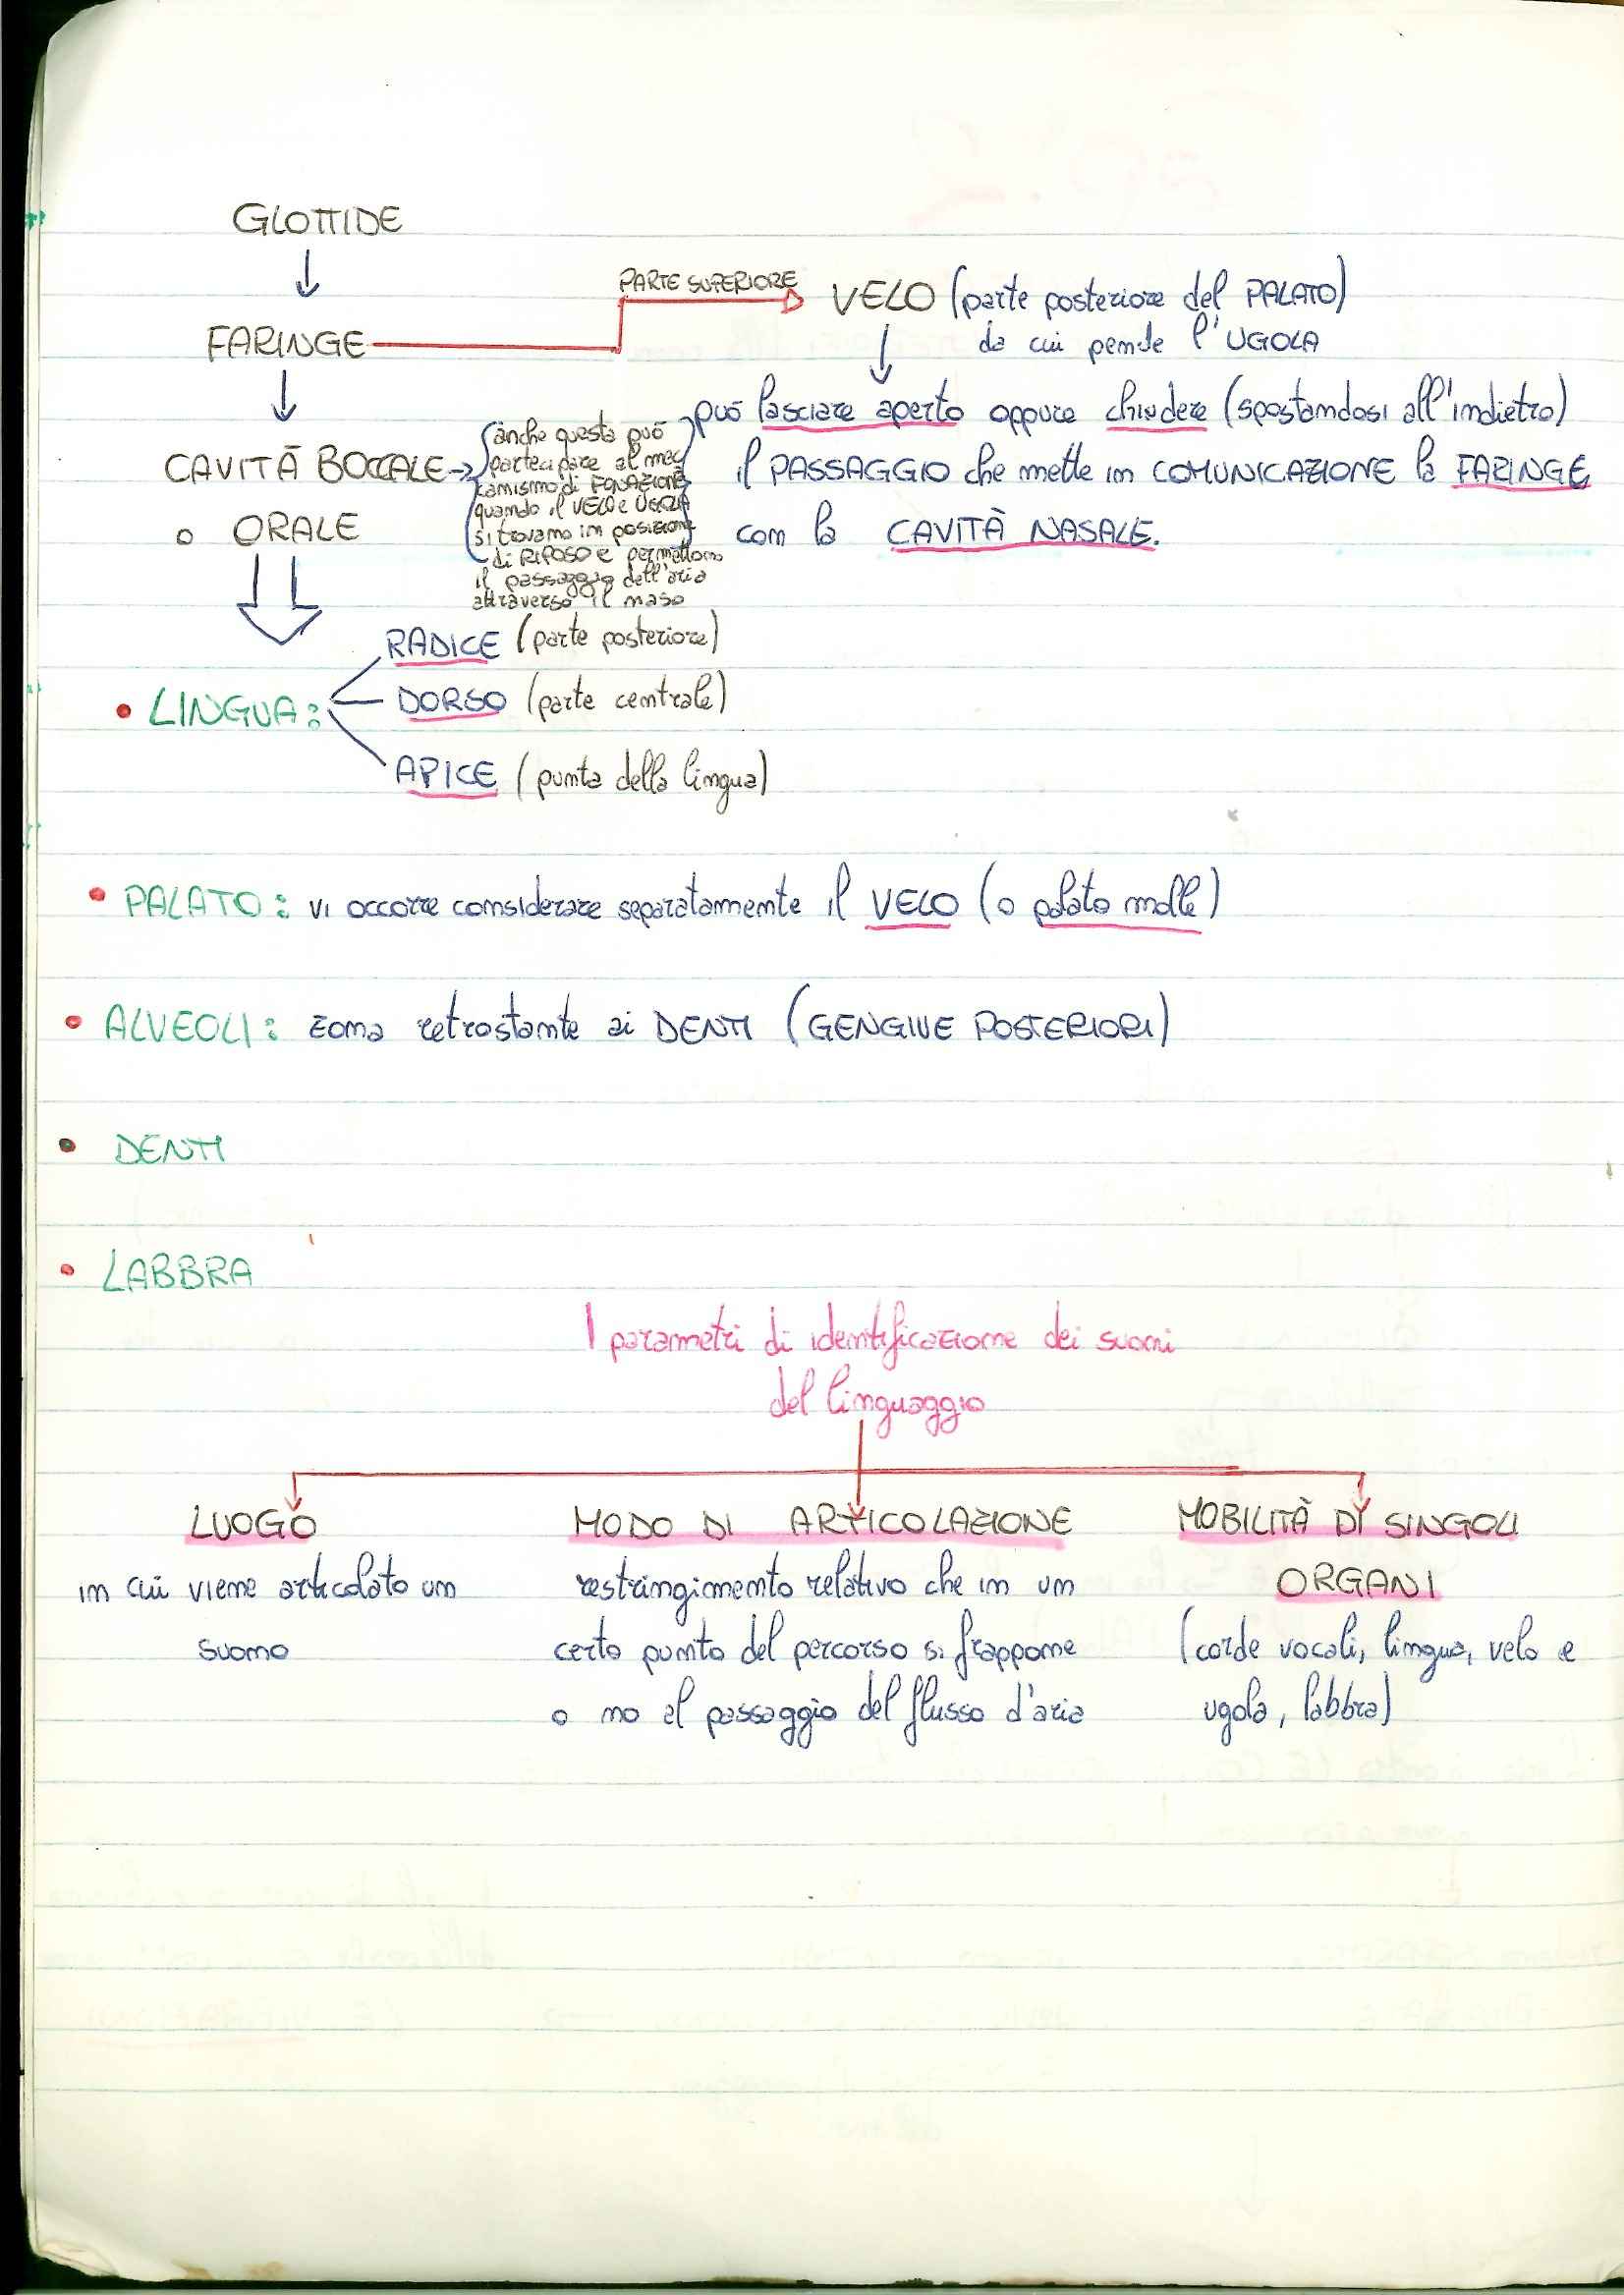 GLOTTIDE
PARTE SUPERIORE
VELO (parte posteriore del PALATO)
FARINGE
da cui pende l'UGOLA
può lasciare aperto oppure chiudere (spostandosi all'indietro)
il PASSAGGIO che mette in COMUNICAZIONE la FARINGE
con la CAVITÀ NASALE.
CAVITÀ BOCCALE
o ORALE
anche questa può
partecipare al mec
canismo di FONAZIONE
quando il VELO e UGOLA
si trovano in posizione
di RIPOSO e permettono
il passaggio dell'aria
attraverso il naso
RADICE (parte posteriore)
• LINGUA: DORSO (parte centrale)
APICE (punta della lingua)
• PALATO: vi occorre considerare separatamente il VELO (o palato molle)
• ALVEOLI: zona retrostante ai DENTI (GENGIVE POSTERIORI)
• DENTI
• LABBRA
I parametri di identificazione dei suoni
del linguaggio
LUOGO
in cui viene articolato un
suono
MODO DI ARTICOLAZIONE
restringimento relativo che in un
certo punto del percorso si frappone
o no al passaggio del flusso d'aria
MOBILITÀ DI SINGOLI
ORGANI
(corde vocali, lingua, velo e
ugola, labbra)